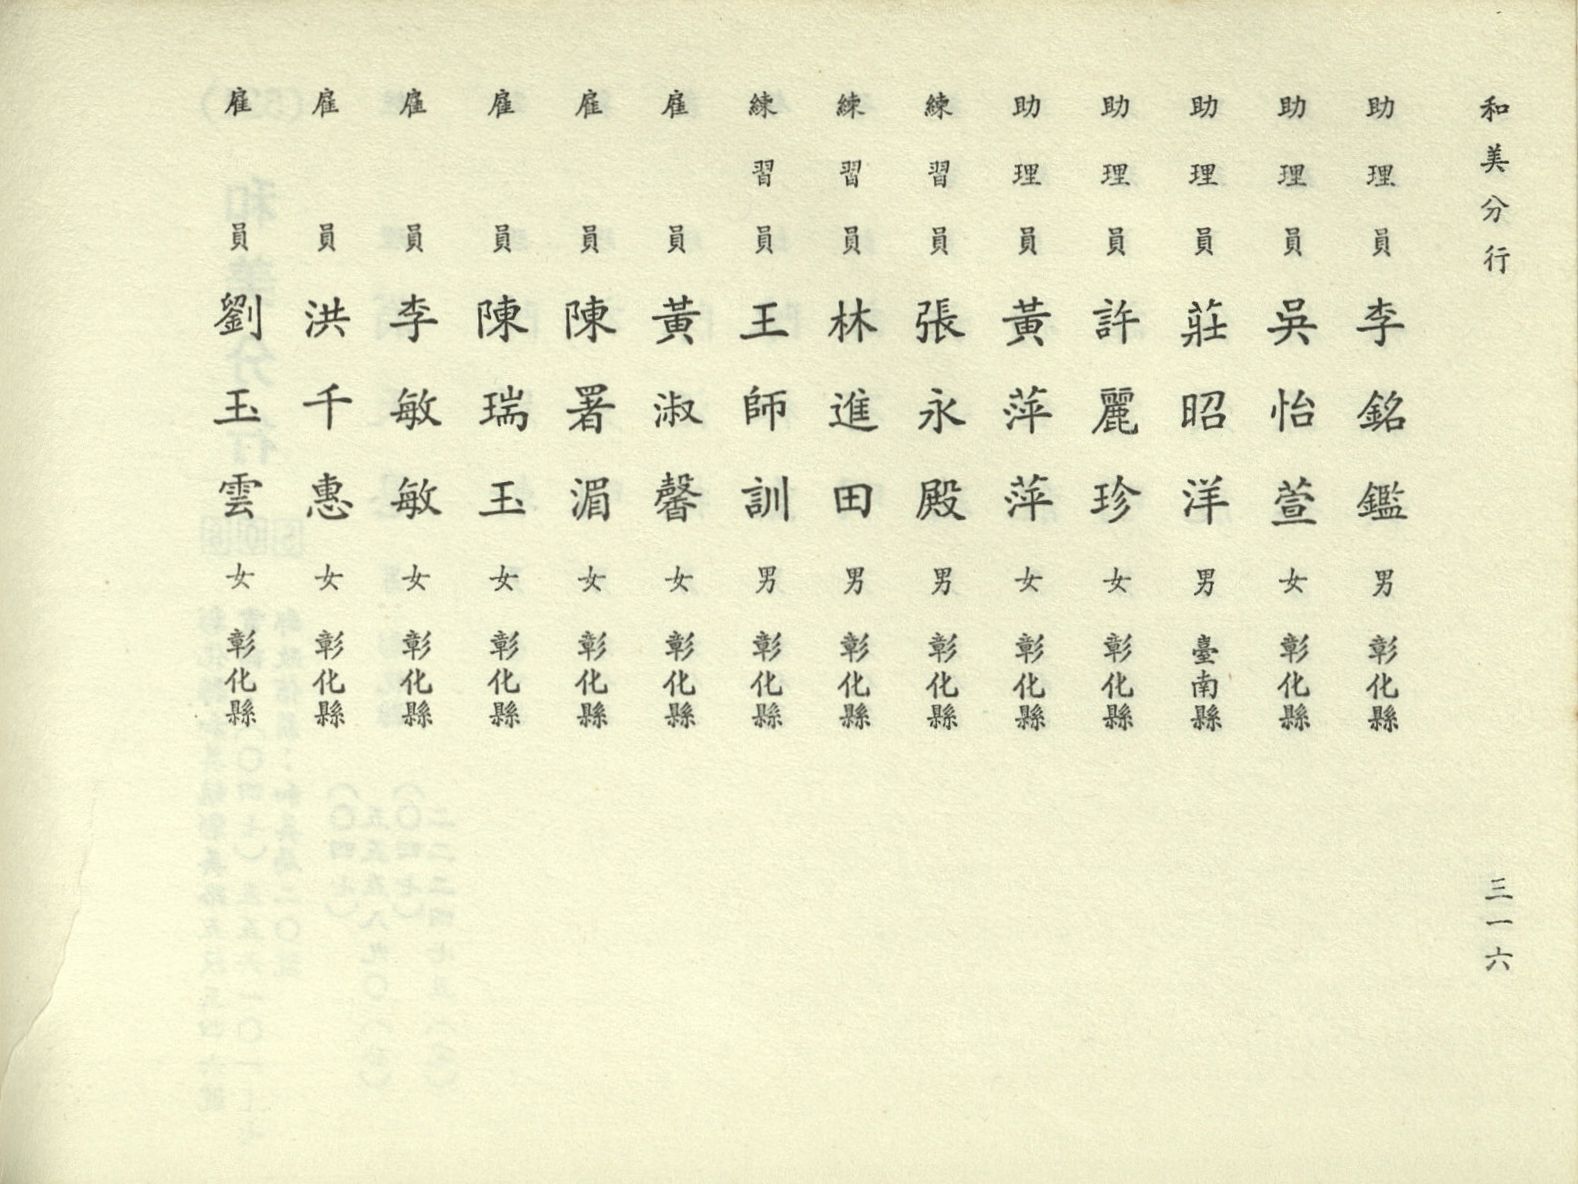 和美分行
三一六
助理員 李銘鑑 男 彰化縣
助理員 吳怡萱 女 彰化縣
助理員 莊昭洋 男 臺南縣
助理員 許麗珍 女 彰化縣
助理員 黃萍萍 女 彰化縣
練習員 張永殿 男 彰化縣
練習員 林進田 男 彰化縣
練習員 王師訓 男 彰化縣
雇員 黃淑馨 女 彰化縣
雇員 陳署湄 女 彰化縣
雇員 陳瑞玉 女 彰化縣
雇員 李敏敏 女 彰化縣
雇員 洪千惠 女 彰化縣
雇員 劉玉雲 女 彰化縣